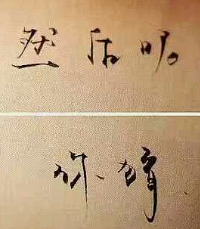 然后呢
你猜